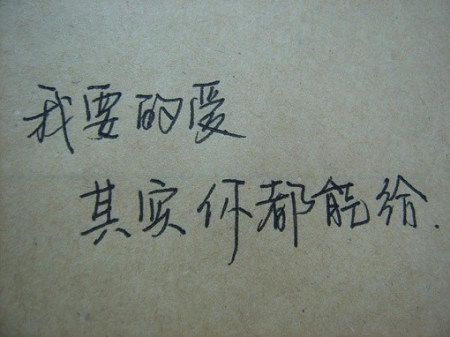 我要的爱
其实你都能给.